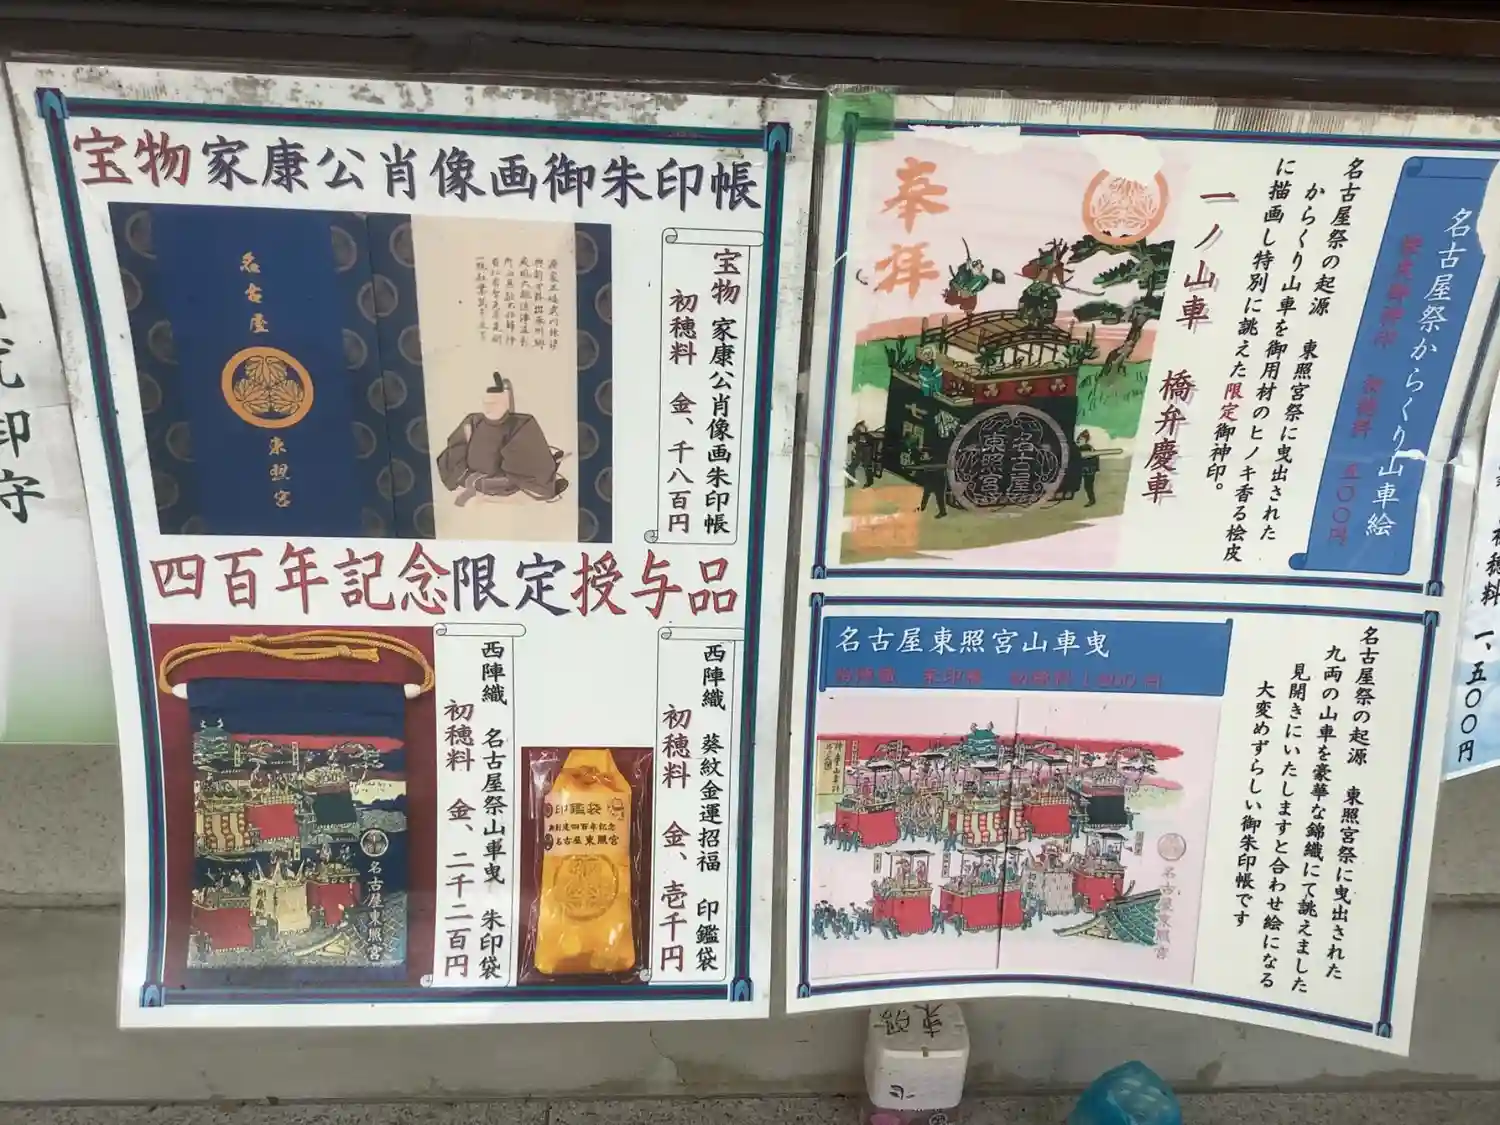 宝物家康公肖像画御朱印帳
名古屋
東照宮
宝物 家康公肖像画朱印帳
初穂料 金、千八百円
四百年記念限定授与品
西陣織 名古屋祭山車曳 朱印袋
初穂料 金、二千二百円
名古屋東照宮
西陣織 葵紋金運招福 印鑑袋
初穂料 金、壱千円
印鑑袋
御鎮座四百年記念
名古屋東照宮
名古屋祭からくり山車絵
限定御神印 初穂料 五〇〇円
名古屋祭の起源 東照宮祭に曳出された
からくり山車を御用材のヒノキ香る桧皮
に描画し特別に誂えた限定御神印。
一ノ山車 橋弁慶車
奉拝
七間
名古屋
東照宮
名古屋東照宮山車曳
西陣織 朱印帳 初穂料1,800円
名古屋祭の起源 東照宮祭に曳出された
九両の山車を豪華な錦織にて誂えました
見開きにいたしますと合わせ絵になる
大変めずらしい御朱印帳です
名古屋東照宮
御守
穂料 一、五〇〇円